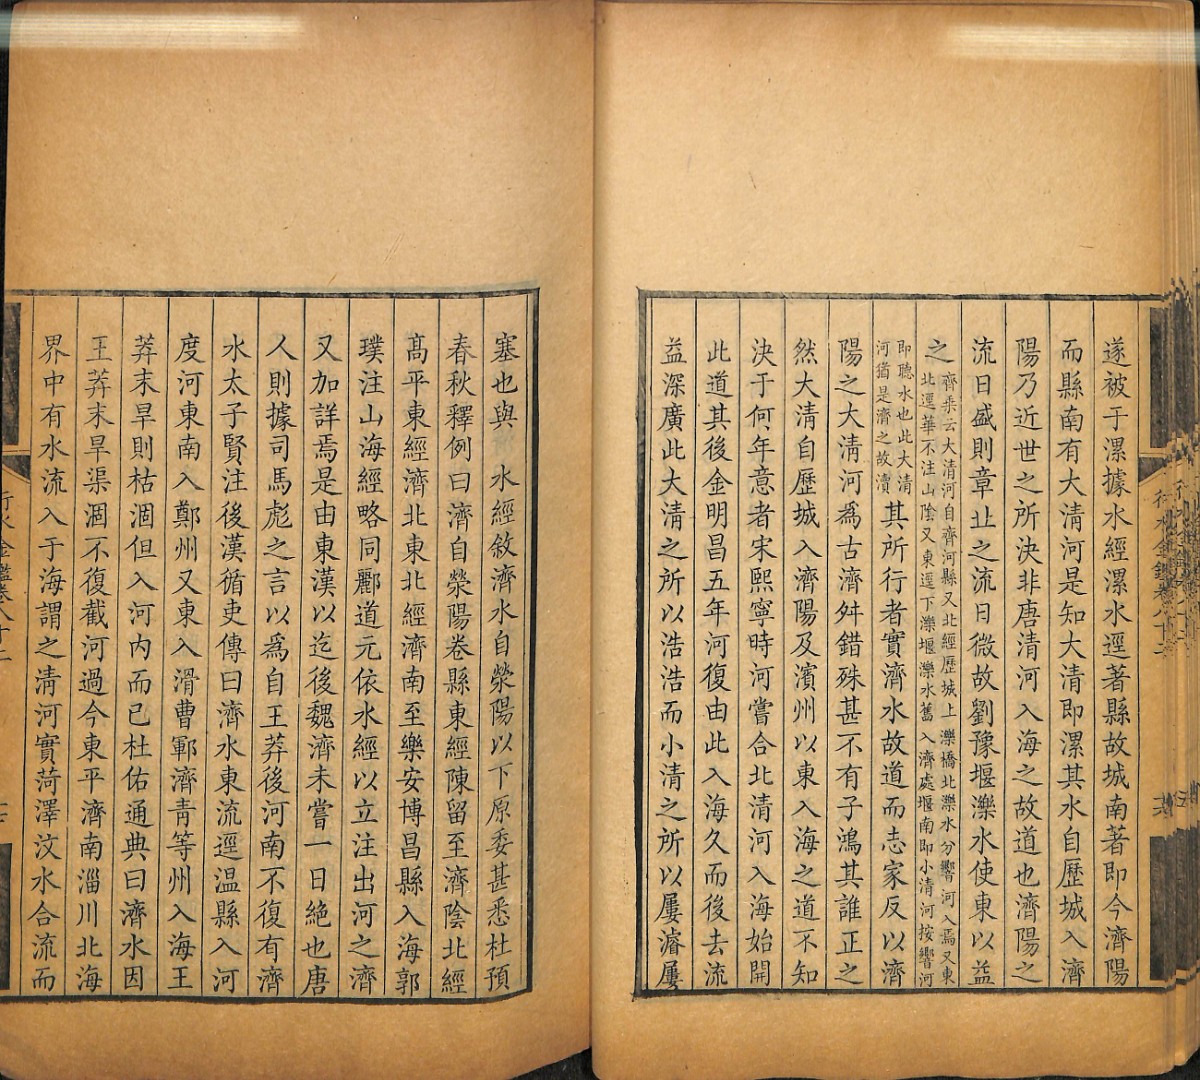 遂被于漯據水經漯水逕著縣故城南著即今濟陽
而縣南有大清河是知大清即漯其水自歷城入濟
陽乃近世之所決非唐清河入海之故道也濟陽之
流日盛則章丠之流日微故劉豫堰濼水使東以益
之
齊乗云大清河自齊河縣又北經歷城上濼橋北濼水分響河入焉又東
北逕華不注山陰又東逕下濼堰濼水舊入濟處堰南即小清河按響河
即聽水也此大清
河猶是濟之故瀆
其所行者實濟水故道而志家反以濟
陽之大清河為古濟舛錯殊甚不有子鴻其誰正之
然大清自歷城入濟陽及濱州以東入海之道不知
決于何年意者宋熙寧時河嘗合北清河入海始開
此道其後金明昌五年河復由此入海久而後去流
益深廣此大清之所以浩浩而小清之所以屢濬屢
塞也與 水經敘濟水自滎陽以下原委甚悉杜預
春秋釋例曰濟自滎陽卷縣東經陳留至濟陰北經
高平東經濟北東北經濟南至樂安博昌縣入海郭
璞注山海經略同酈道元依水經以立注出河之濟
又加詳焉是由東漢以迄後魏濟未嘗一日絕也唐
人則據司馬彪之言以為自王莽後河南不復有濟
水太子賢注後漢循吏傳曰濟水東流逕溫縣入河
度河東南入鄭州又東入滑曹鄆濟青等州入海王
莽末旱則枯涸但入河內而已杜佑通典曰濟水因
王莽末旱渠涸不復截河過今東平濟南淄川北海
界中有水流入于海謂之清河實菏澤汶水合流而
行水金鑑卷八十二